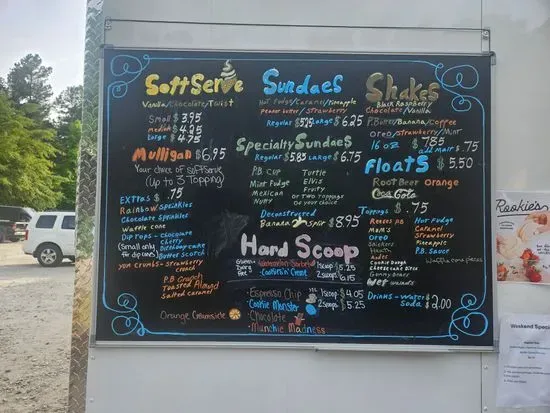 Soft Serve
Vanilla/Chocolate/Twist
Small $3.95
Medium $4.25
Large $4.75
Mulligan $6.95
Your choice of softserve
(Up to 3 Topping)
Extras $.75
Rainbow Sprinkles
Chocolate Sprinkles
Waffle Cone
Dip Tops - Chocolate
Cherry
(Small only for dip cones)
Birthday Cake
Butter Scotch
Yum Crumbs - Strawberry Crunch
P.B Crunch
Toasted Almond
Salted Caramel
Orange Creamsicle
Sundaes
Hot Fudge/Caramel/Pineapple
Peanut butter/Strawberry
Regular $5.25 Large $6.25
Specialty Sundaes
Regular $5.85 Large $6.75
P.B Cup
Mint Fudge
Mexican
Nutty
Turtle
Elvis
Fruity
or Two Toppings
of your choice
Deconstructed
Banana Split $8.95
Hard Scoop
Watermelon Sherbet
Cookies n' Creme
1 scoop $5.25
2 scoop $6.15
Espresso Chip
Cookie Monster
Chocolate
Munchie Madness
1 Scoop $4.05
2 Scoop $5.25
Shakes
Black Raspberry
Chocolate/Vanilla
P.Butter/Banana/Coffee
Oreo/Strawberry/Mint
16 oz $7.85
add Malt $.75
Floats $5.50
Root Beer Orange
Coca Cola
Toppings $.75
Reeses PB
M&M's
Oreo
Snickers
Heath
Andes
Cookie Dough
Cheesecake Bites
Gummy Bears
Wet Walnuts
Hot Fudge
Caramel
Strawberry
Pineapple
P.B. Sauce
Waffle Cone pieces
Drinks - Water
Soda $2.00
Rookie's
Weekend Special